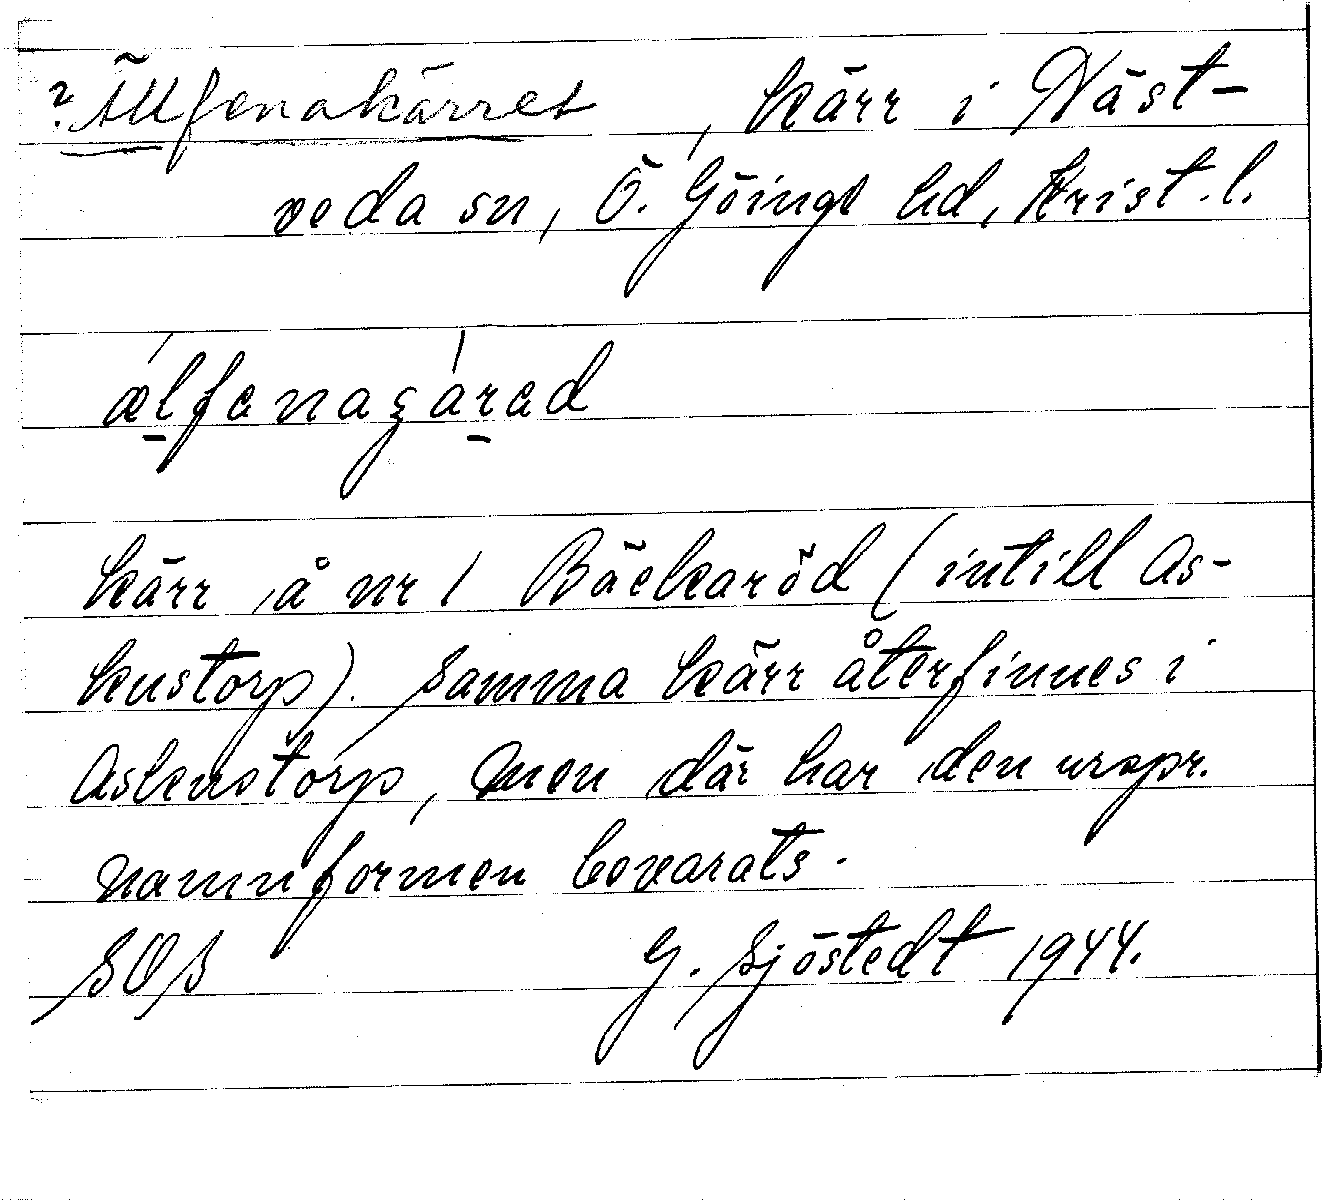 ? Ällfenakärret, kärr i Näst-
veda sn, Ö. Göinge hd, Krist. l.
ælfenagárad
kärr å nr 1 Bäckaröd (intill As-
kustorp). Samma kärr återfinnes i
Askustorp, men där har den urspr.
namnformen bevarats.
SOS G. Sjöstedt 1944.